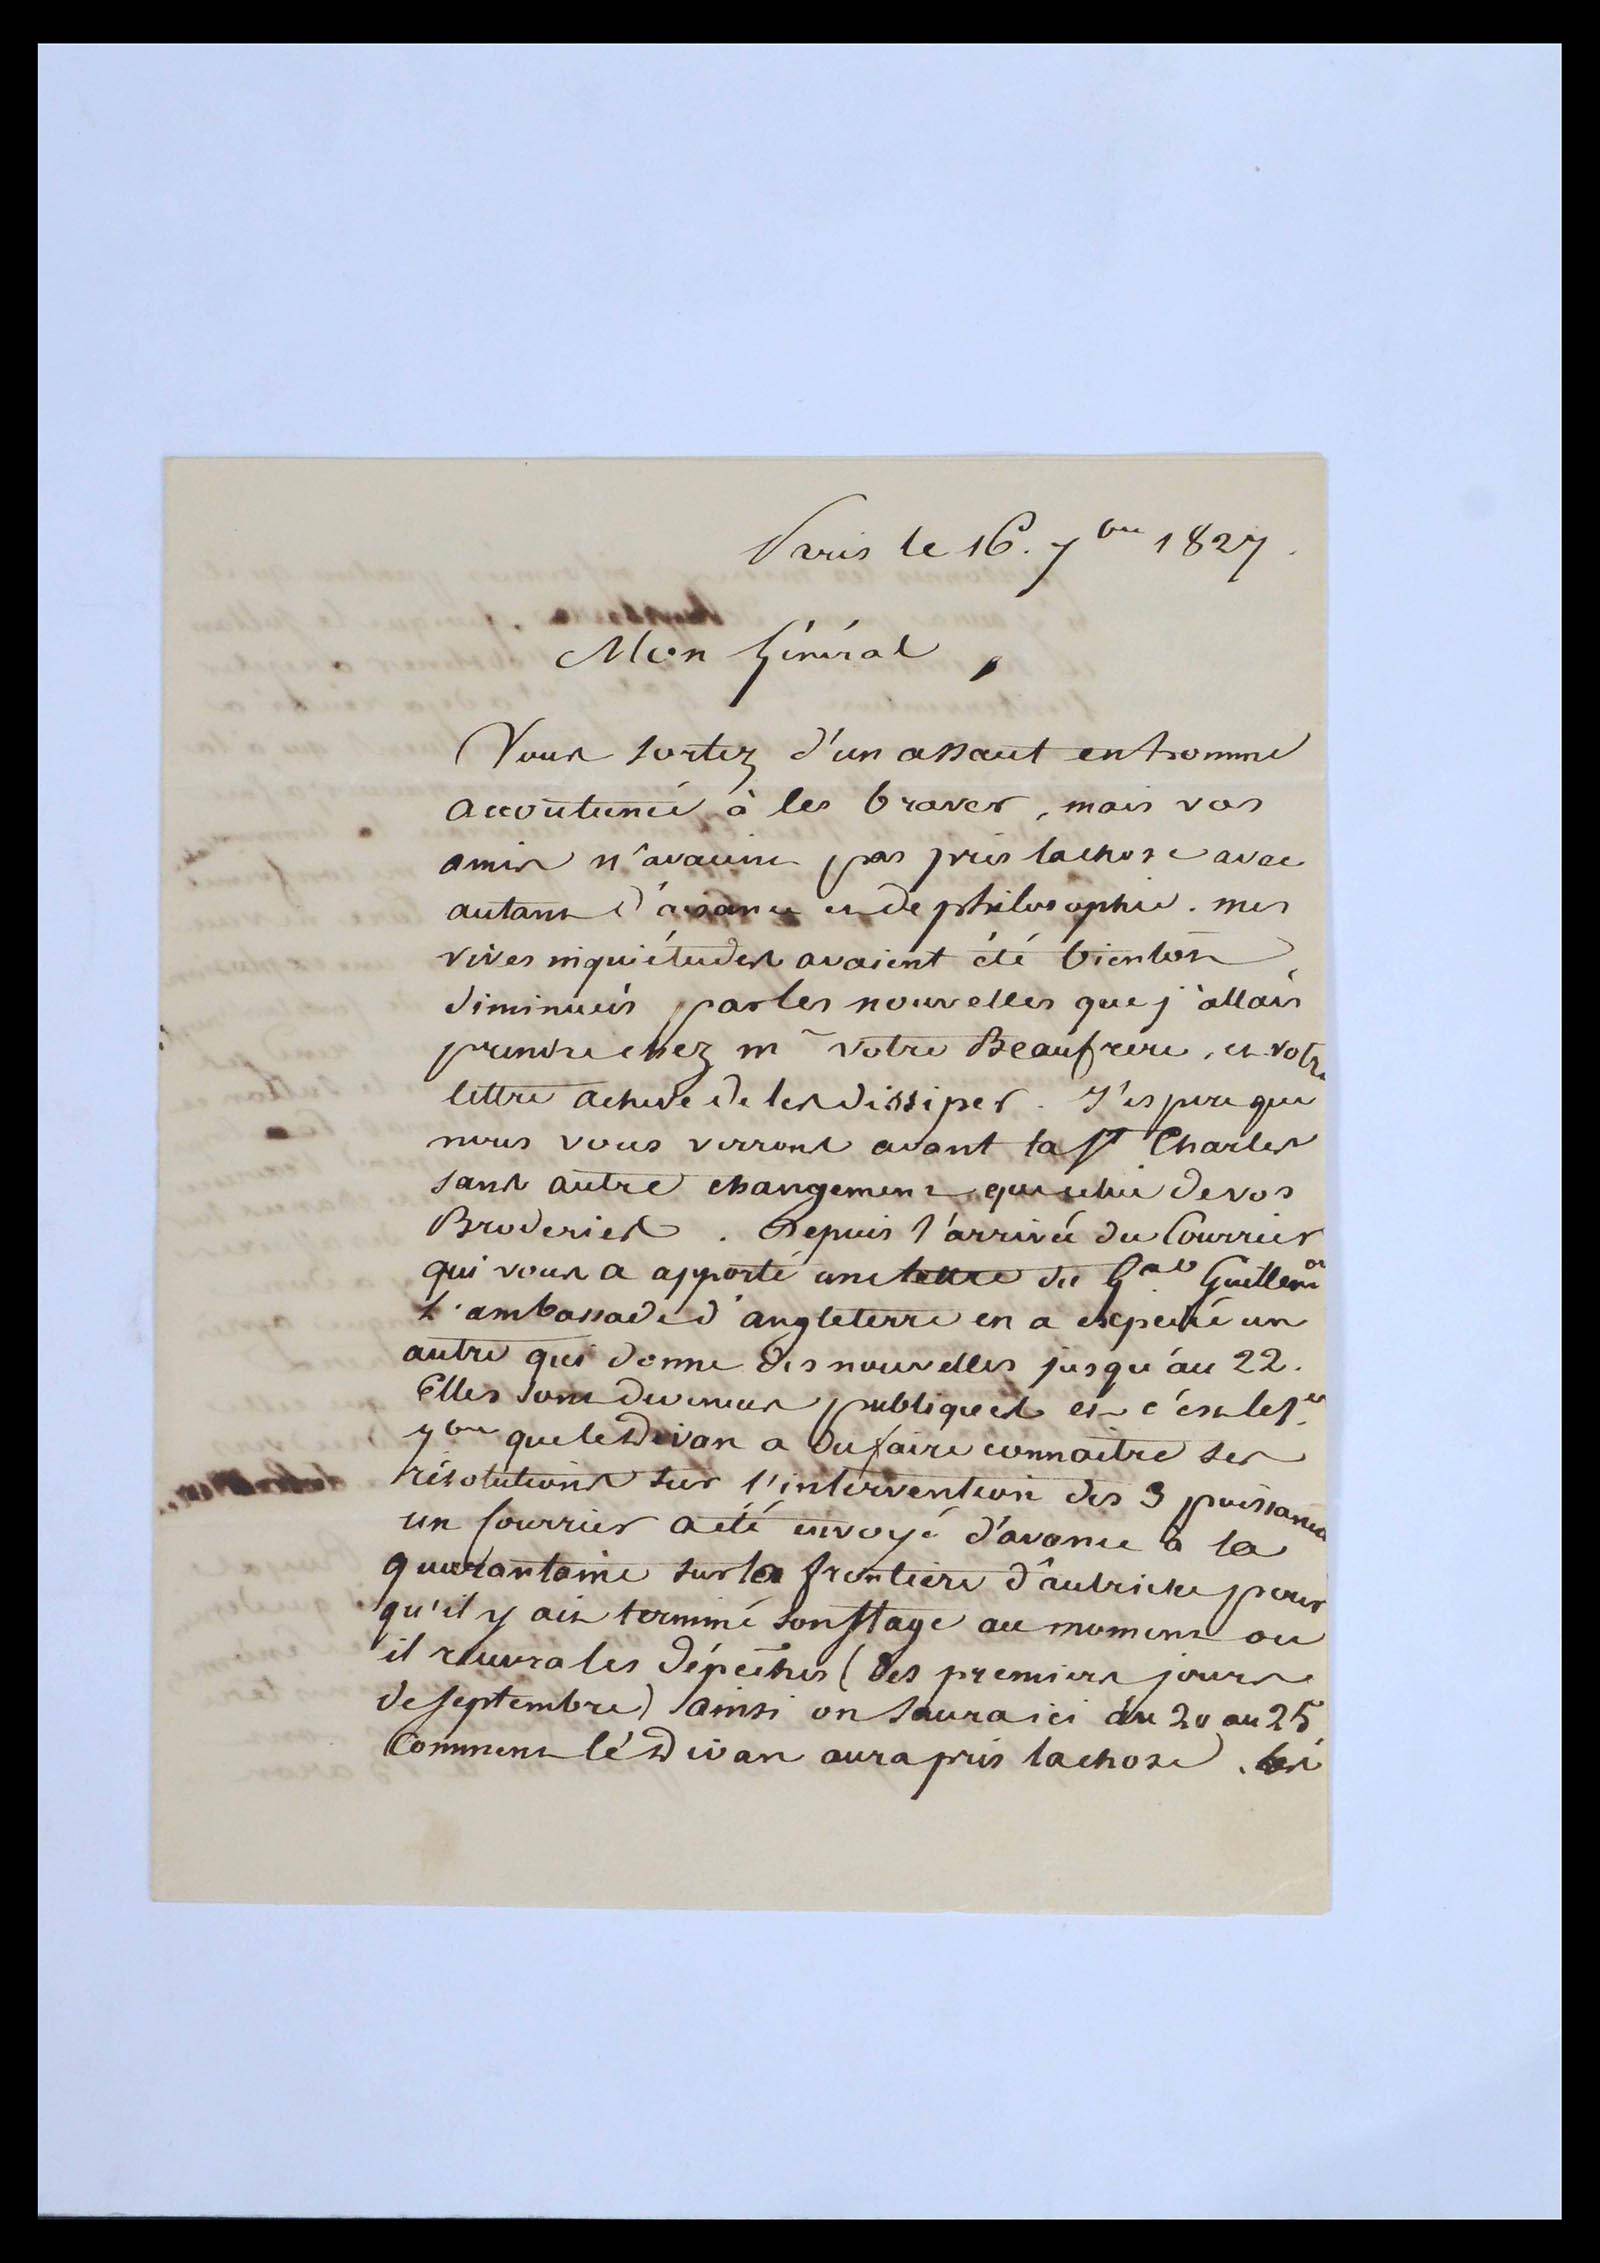 Paris le 16. 7bre 1827.
Mon Général,
Vous sortez d'un assaut en homme
accoutumé à les braver, mais vos
amis n'avaient pas pris la chose avec
autant d'aisance et de philosophie. mes
vives inquiétudes avaient été bientôt
diminuées par les nouvelles que j'allais
prendre chez mr votre Beaufrere, et votre
lettre acheve de les dissiper. J'espere que
nous vous verrons avant la St Charles
sans autre changement que celui de vos
Broderies. Depuis l'arrivée du Courrier
qui vous a apporté une lettre du Gal Guilleminot
L'ambassade d'angleterre en a expedié un
autre qui donne des nouvelles jusqu'au 22.
Elles sont devenues publiques et c'est le 1er
7bre que le Divan a du faire connaitre ses
résolutions sur l'intervention des 3 puissances
un Courrier a été envoyé d'avance à la
quarantaine sur la frontiere d'autriche pour
qu'il y ait terminé son stage au moment ou
il recevra les dépêches (des premiers jours
de septembre) ainsi on saura ici du 20 au 25
Comment le Divan aura pris la chose.